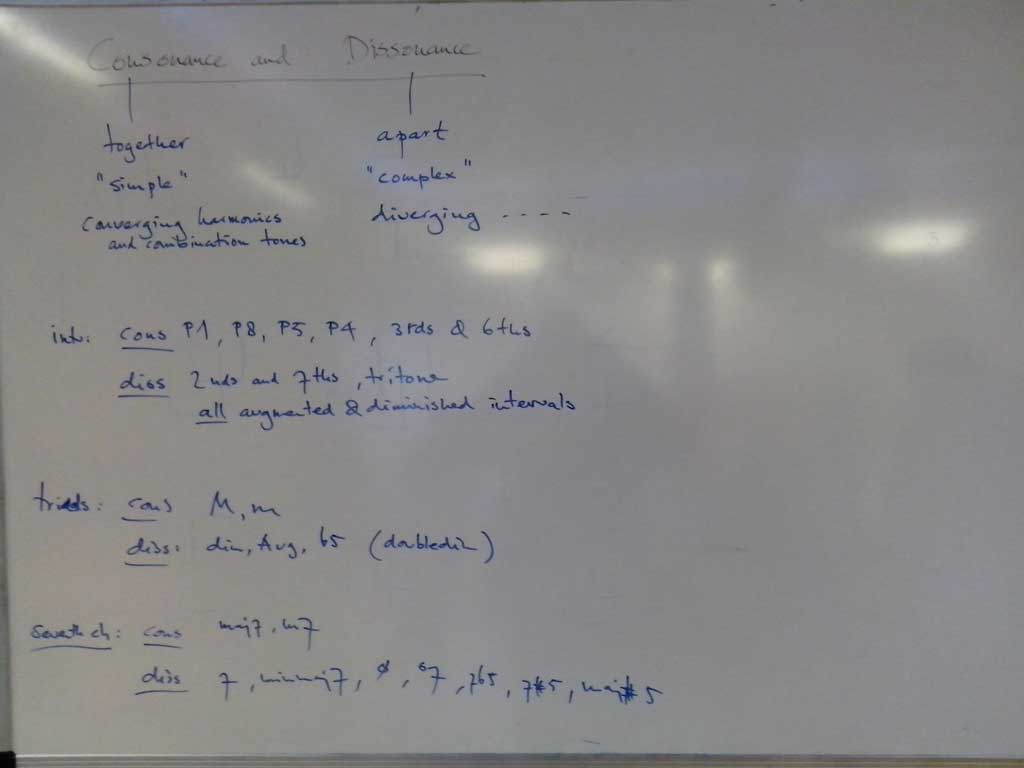 Consonance and Dissonance
together apart
"simple" "complex"
Converging harmonics diverging ----
and combination tones
intv: cons P1, P8, P5, P4, 3rds & 6ths
diss 2nds and 7ths, tritone
all augmented & diminished intervals
triads: cons M, m
diss: dim, Aug, b5 (doubledim)
Seventh ch: cons maj7, m7
diss 7, minmaj7, ø, °7, 7b5, 7#5, maj#5